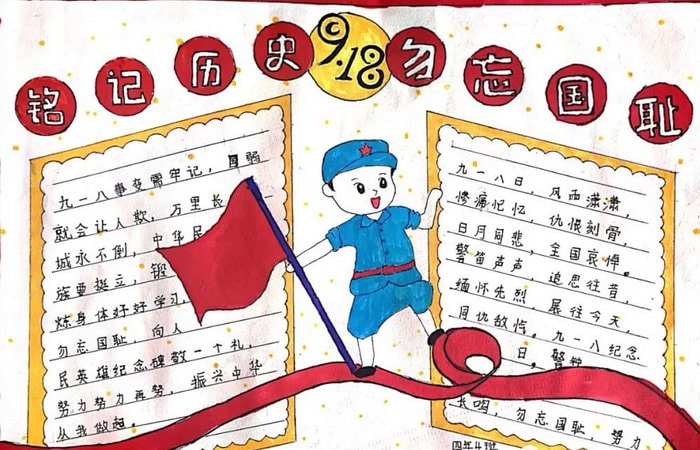 铭记历史 9.18 勿忘国耻
九一八事变需牢记，国弱
就会让人欺，万里长
城永不倒，中华民
族要挺立，锻
炼身体好好学习，
勿忘国耻，向人
民英雄纪念碑敬一个礼，
努力努力再努，振兴中华
从我做起。
九一八日，风雨潇潇，
惨痛记忆，仇恨刻骨，
日月同悲，全国哀悼。
警笛声声，追思往昔，
缅怀先烈，展往今天，
同仇敌忾。九一八纪念
日，警钟
长鸣，勿忘国耻，努力
四年4班